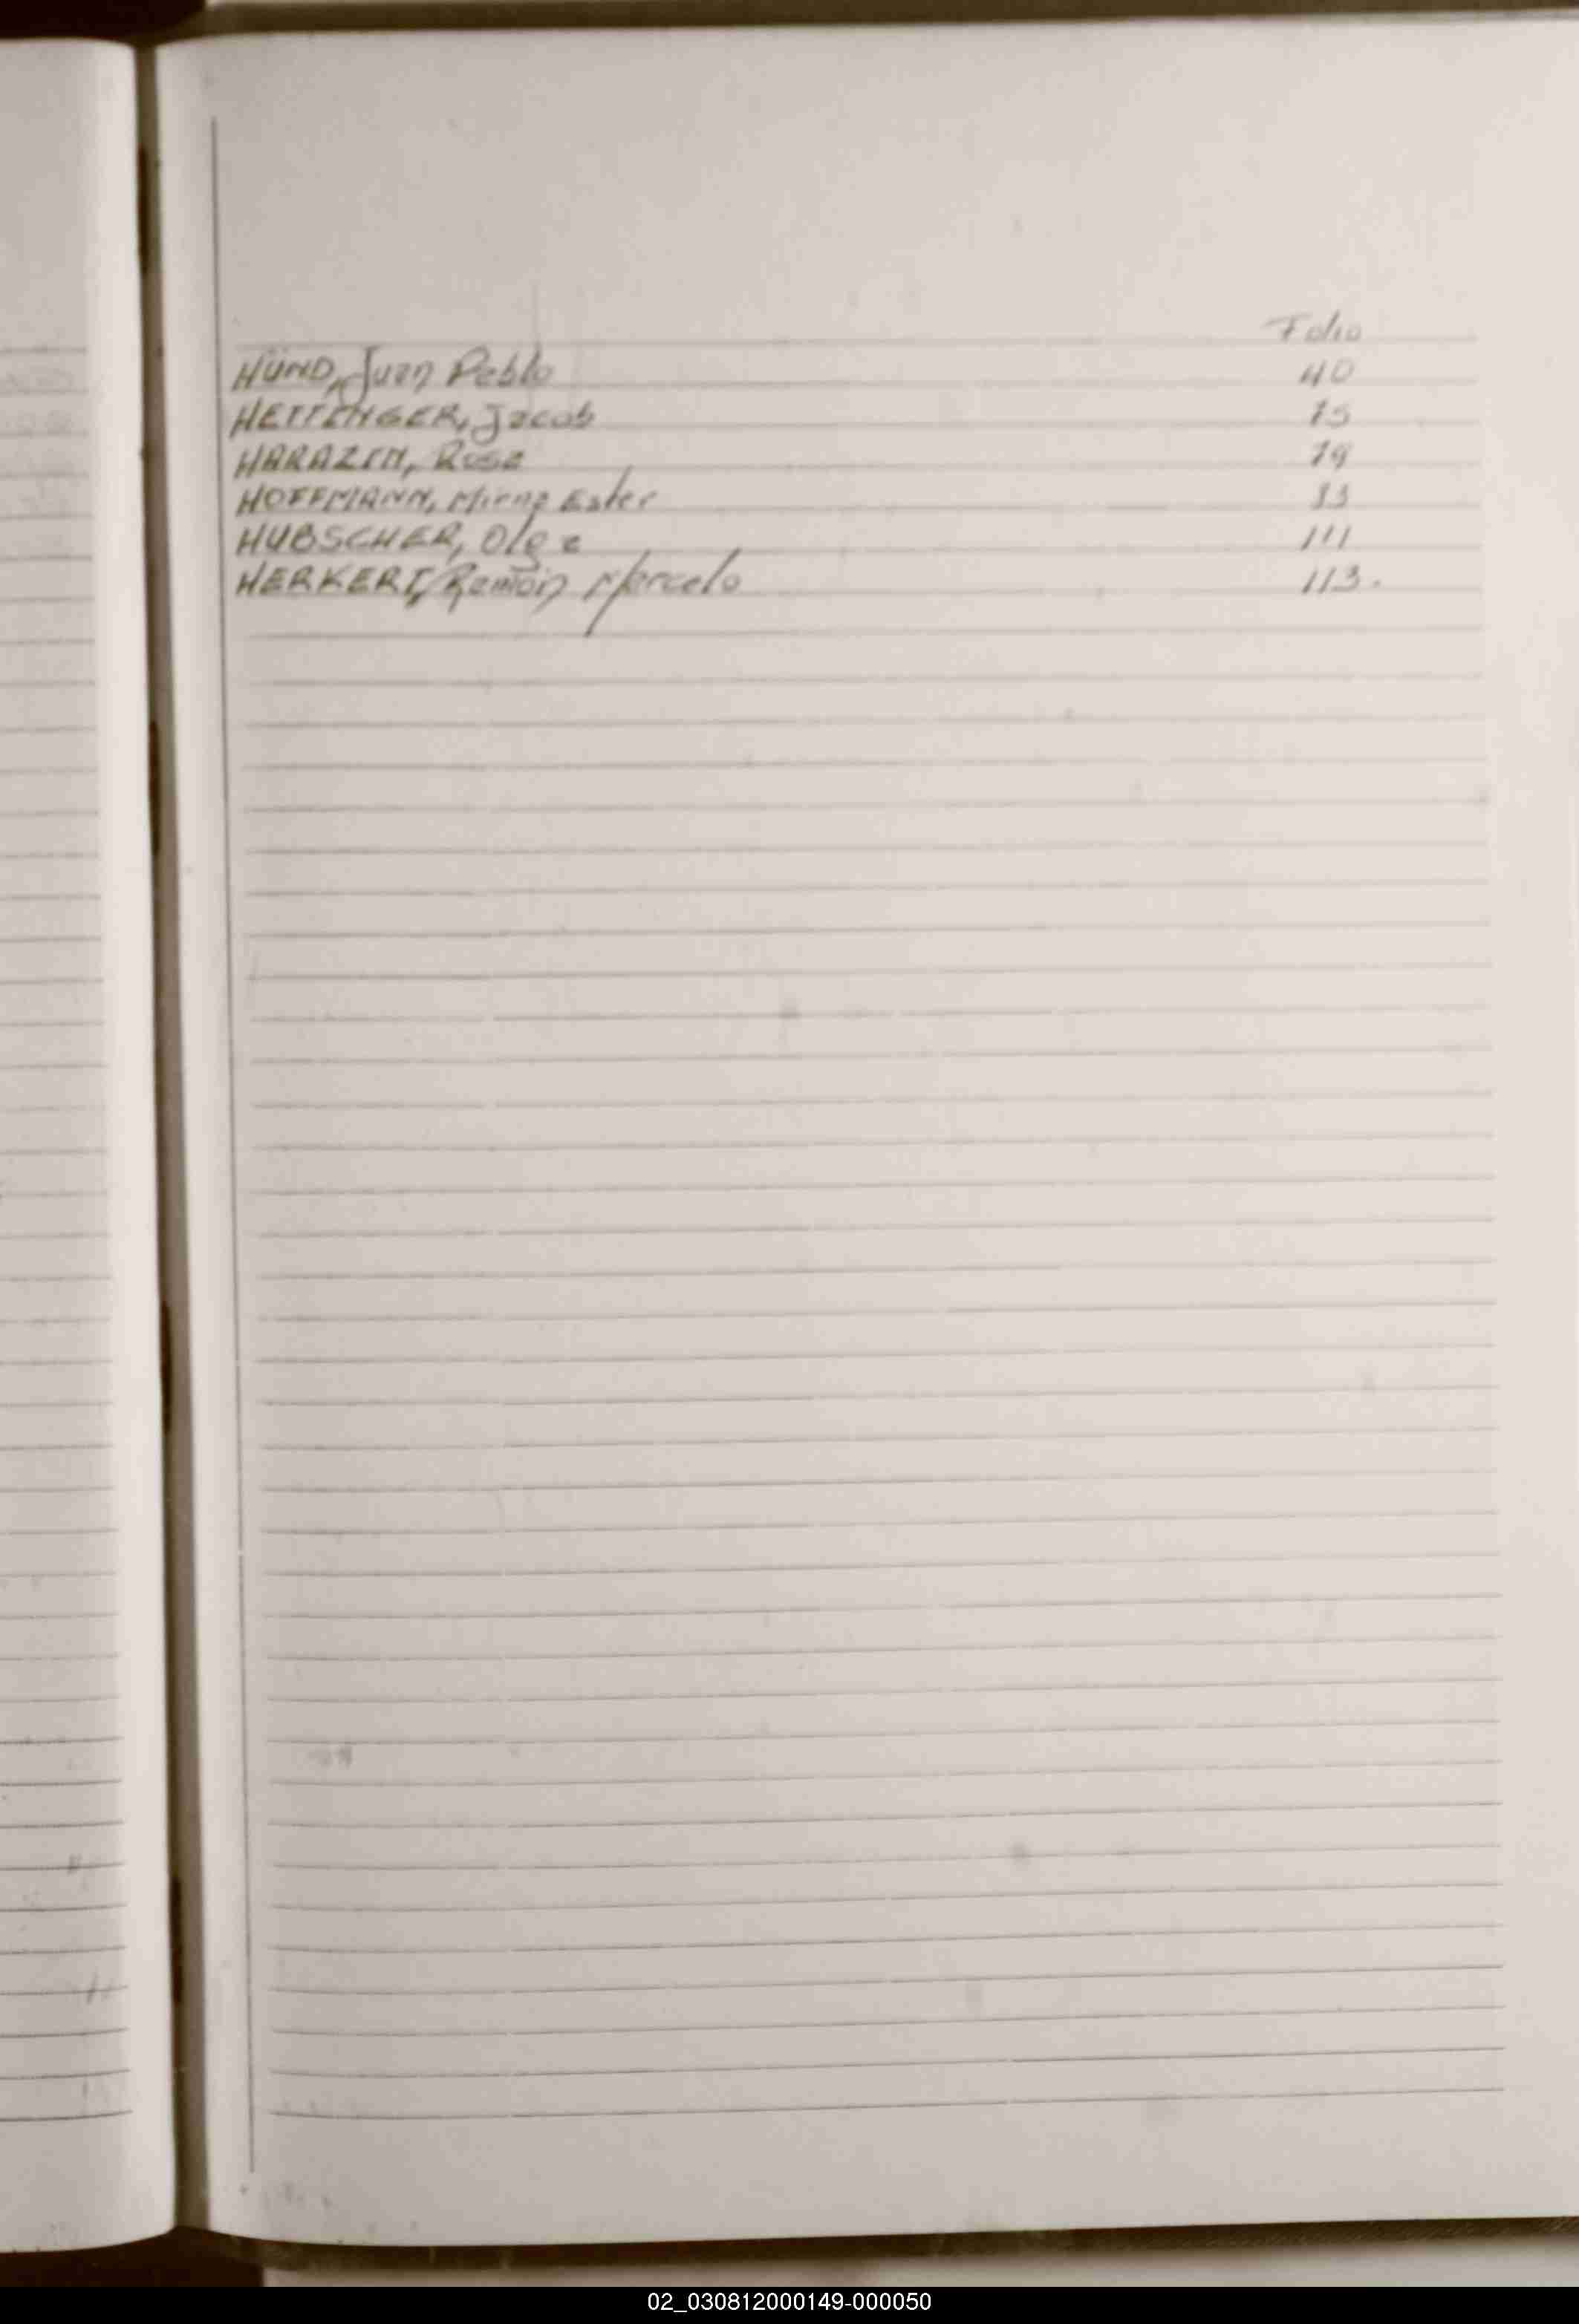 Folio
HÜND, Juan Pablo 40
HETTENGER, Jacob 75
HARAZIN, Rosa 79
HOFFMANN, Mirna Ester
HUBSCHER, Olga 111
HERKERT, Ramón Marcelo 113.
02_030812000149-000050